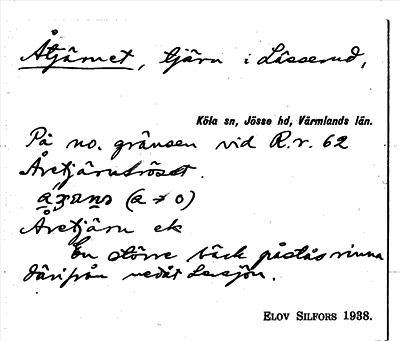 Åtjärnet, tjärn i Lässerud,
Köla sn, Jösse hd, Värmlands län.
På no. gränsen vid R.r. 62
Åretjärnsröset.
(a ≠ o)
Åretjärn ek
En större bäck påstås rinna
därifrån nedåt Lersjön.
ELOV SILFORS 1938.